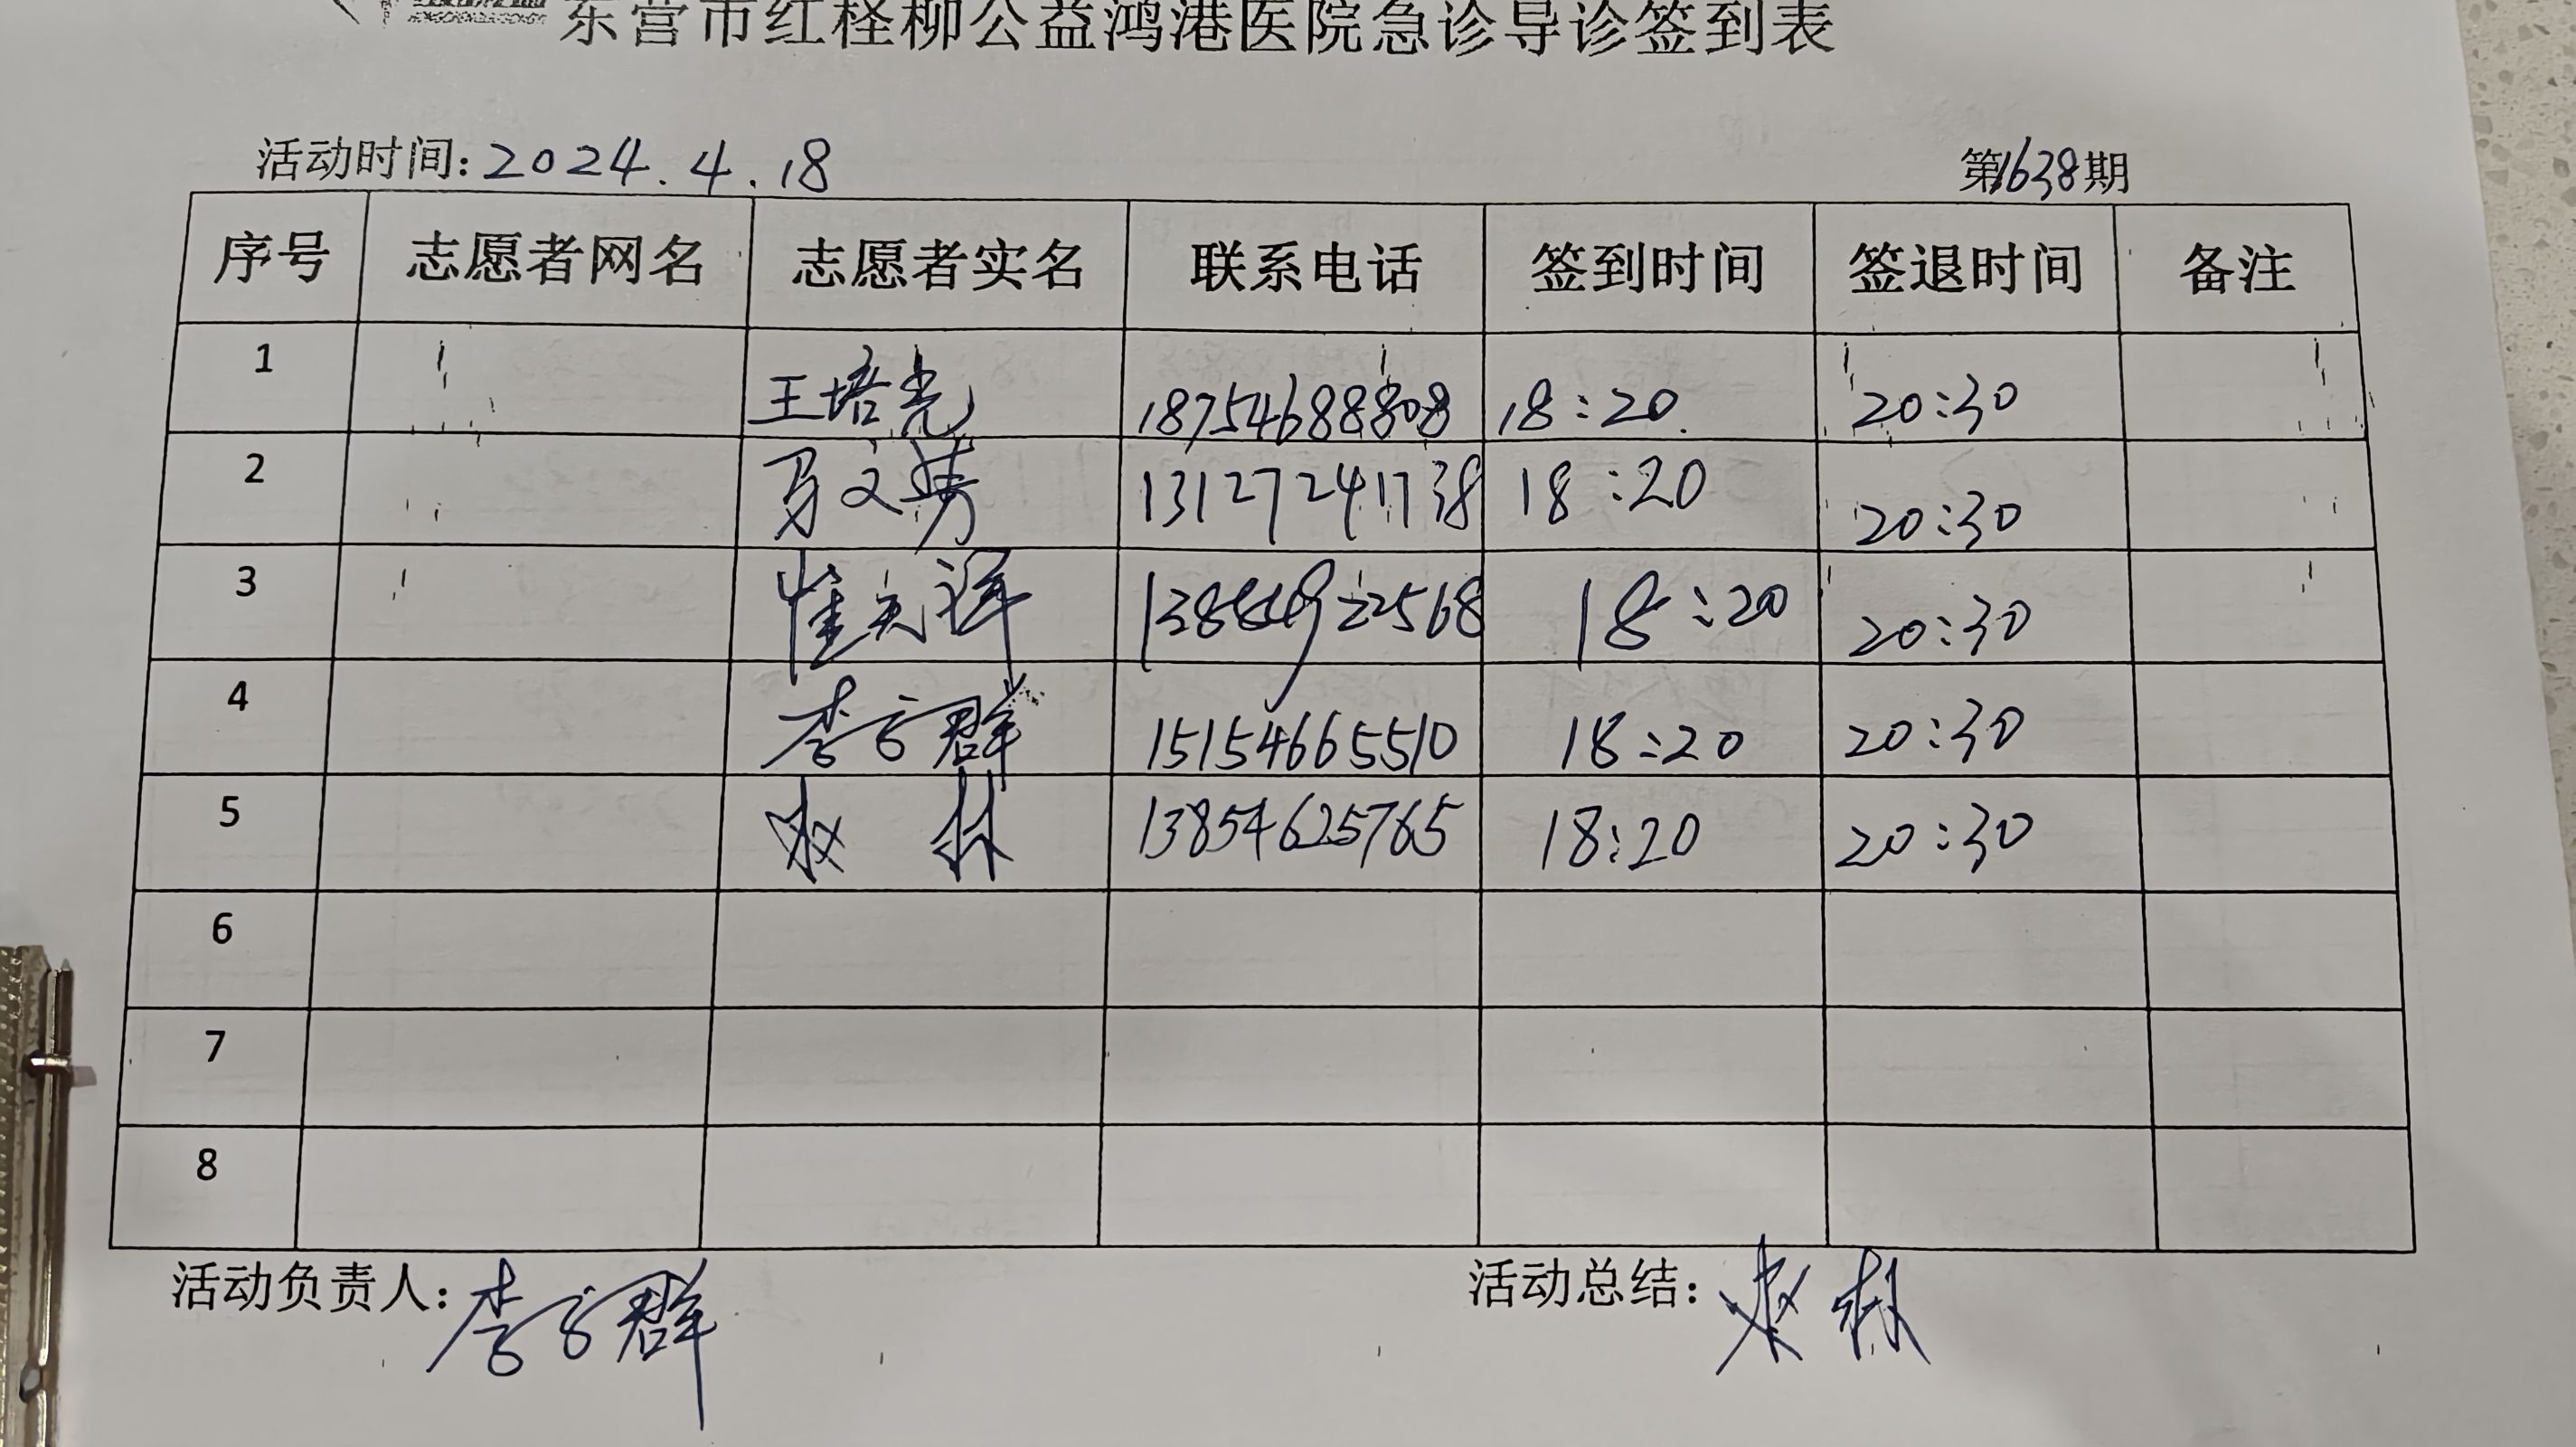 东营市红柽柳公益鸿港医院急诊导诊签到表
活动时间：2024.4.18 第1638期
序号 志愿者网名 志愿者实名 联系电话 签到时间 签退时间 备注
1 王培亮 18754688808 18:20 20:30
2 13127241738 18:20 20:30
3 18:20 20:30
4 李 群 15154665510 18:20 20:30
5 林 13854625765 18:20 20:30
6
7
8
活动负责人：李 群 活动总结： 林